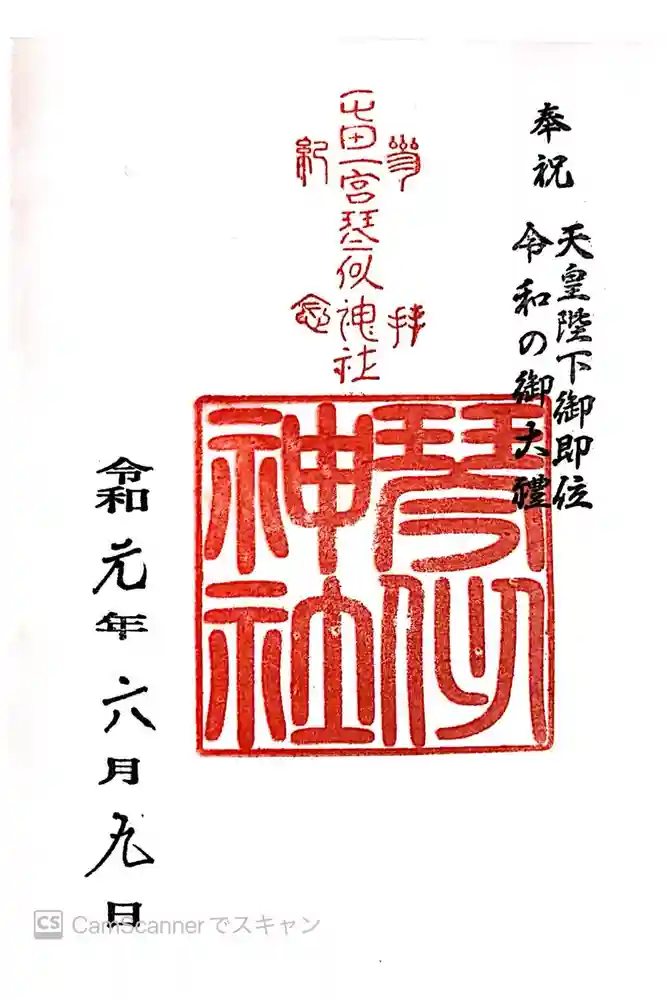 奉祝
天皇陛下御即位
令和の御大禮
屯田一宮琴似神社
参拝
紀念
琴似
神社
令和元年六月九日
CS CamScannerでスキャン